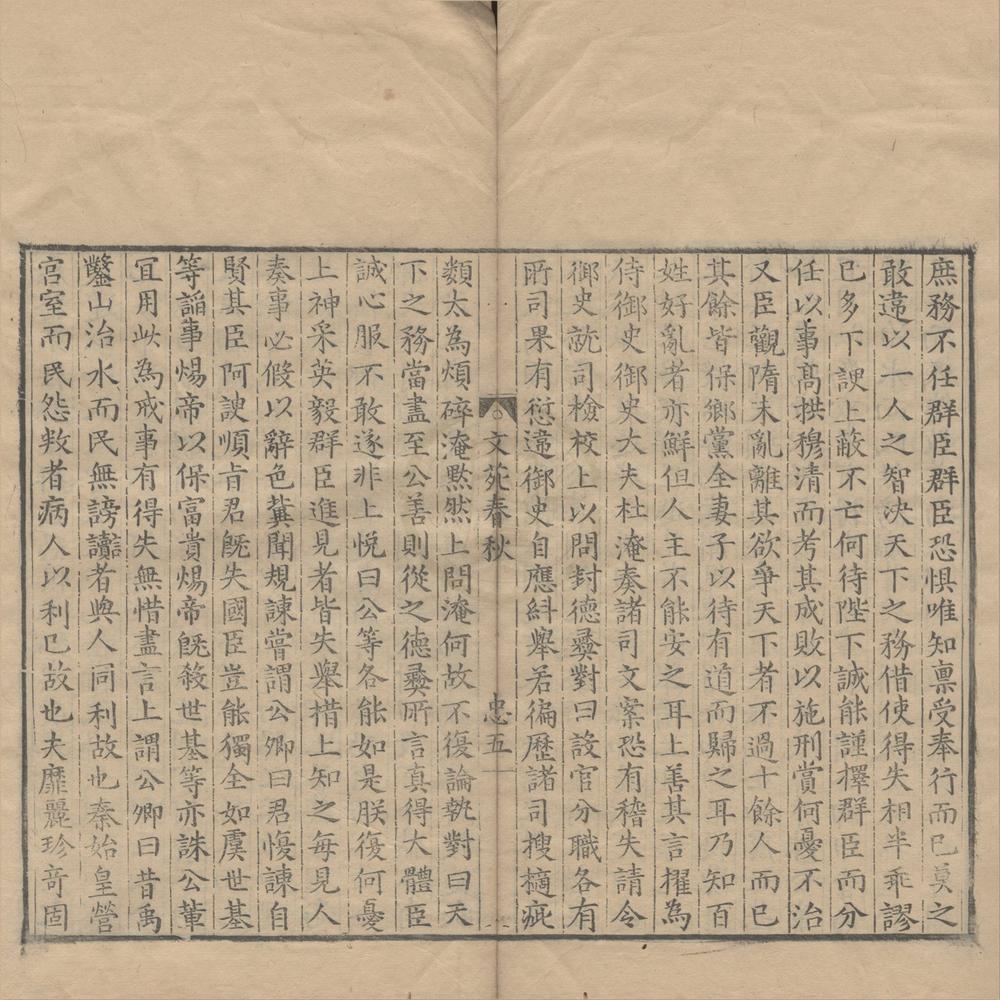 庶務不任群臣群臣恐惧唯知禀受奉行而已莫之
敢違以一人之智决天下之務借使得失相半乖謬
已多下諛上蔽不亡何待陛下誠能謹擇群臣而分
任以事高拱穆清而考其成敗以施刑賞何憂不治
又臣觀隋末亂離其欲爭天下者不過十餘人而已
其餘皆保鄉黨全妻子以待有道而歸之耳乃知百
姓好亂者亦鮮但人主不能安之耳上善其言擢為
侍御史御史大夫杜淹奏諸司文案恐有稽失請令
御史就司檢校上以問封德彝對曰設官分職各有
所司果有愆違御史自應糾舉若徧歷諸司搜擿疵
文苑春秋 忠五 一
纇太為煩碎淹黙然上問淹何故不復論執對曰天
下之務當盡至公善則從之德彝所言真得大體臣
誠心服不敢遂非上悅曰公等各能如是朕復何憂
上神采英毅群臣進見者皆失舉措上知之每見人
奏事必假以辭色冀聞規諫嘗謂公卿曰君愎諫自
賢其臣阿諛順旨君旣失國臣豈能獨全如虞世基
等謟事煬帝以保富貴煬帝旣殺世基等亦誅公輩
冝用此為戒事有得失無惜盡言上謂公卿曰昔禹
鑿山治水而民無謗讟者與人同利故也秦始皇營
宫室而民怨救者病人以利已故也夫靡麗珍竒固